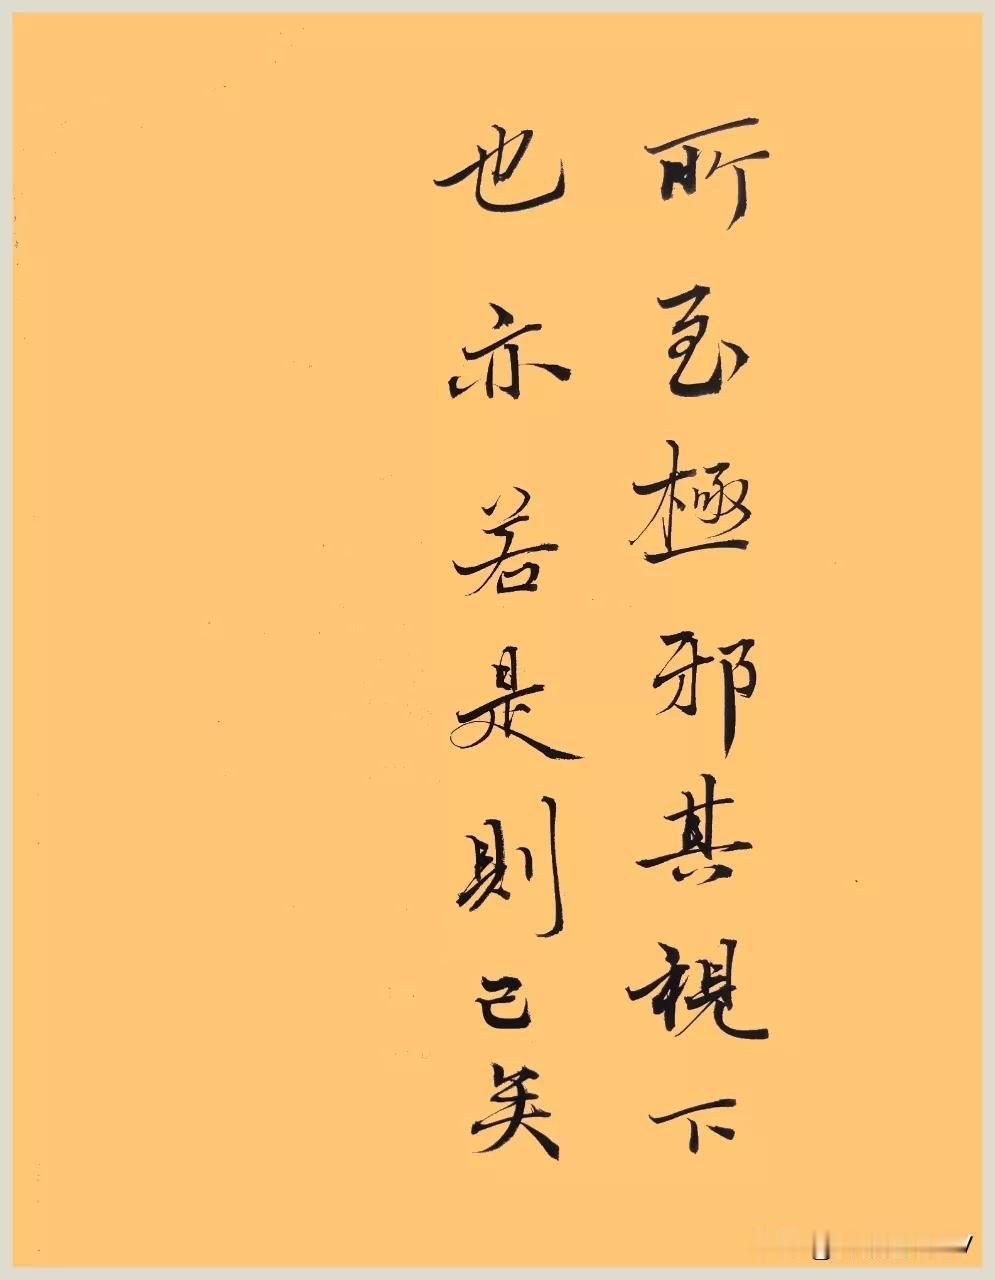 所至極邪其視下
也亦若是則已矣